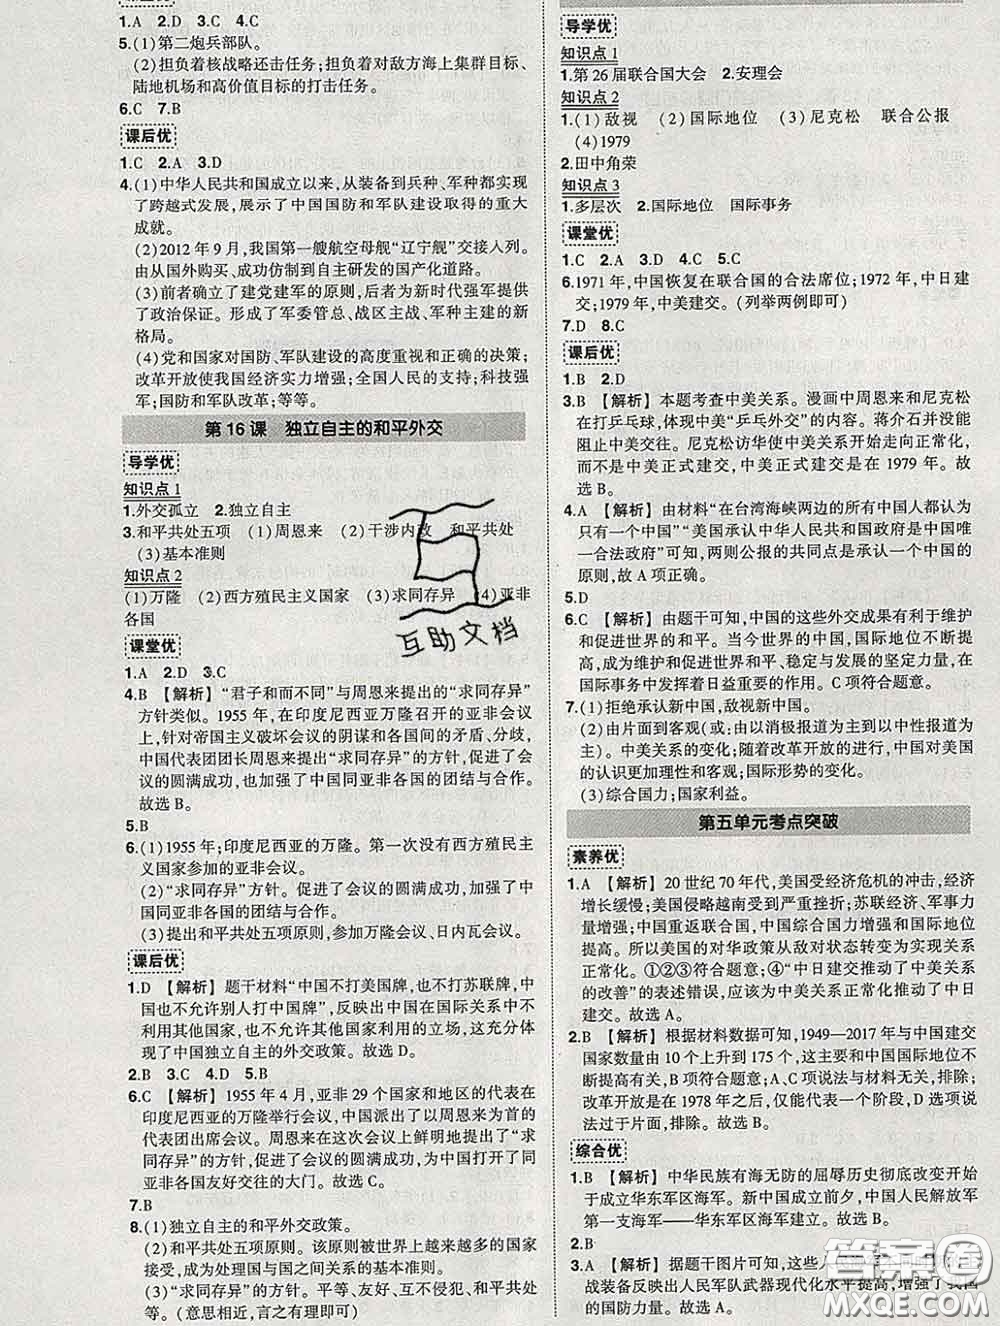 1.A　2.D　3.C　4.C
5.(1)第二炮兵部队。
(2)担负着核战略还击任务;担负着对敌方海上集群目标、
陆地机场和高价值目标的打击任务。
6.C　7.B
课后优
1.C　2.A　3.D
4.(1)中华人民共和国成立以来,从装备到兵种、军种都实现
了跨越式发展,展示了中国国防和军队建设取得的重大
成就。
(2)2012年9月,我国第一艘航空母舰“辽宁舰”交接入列。
由从国外购买、成功仿制到自主研发的国产化道路。
(3)前者确立了建党建军的原则,后者为新时代强军提供
了政治保证。形成了军委管总、战区主战、军种主建的新
格局。
(4)党和国家对国防、军队建设的高度重视和正确的决策;
改革开放使我国经济实力增强;全国人民的支持;科技强
军;国防和军队改革;等等。
第16课　独立自主的和平外交
导学优
知识点1
1.外交孤立　2.独立自主
3.和平共处五项　(1)周恩来　(2)干涉内政　和平共处
(3)基本准则
知识点2
(1)万隆　(2)西方殖民主义国家　(3)求同存异　(4)亚非
各国
课堂优
1.A　2.D　3.C
4.B　【解析】“君子和而不同”与周恩来提出的“求同存异”
方针类似。1955年,在印度尼西亚万隆召开的亚非会议
上,针对帝国主义破坏会议的阴谋和各国间的矛盾、分歧,
中国代表团团长周恩来提出“求同存异”的方针,促进了会
议的圆满成功,也加强了中国同亚非各国的团结与合作。
故选B。
5.B
6.(1)1955年;印度尼西亚的万隆。第一次没有西方殖民主
义国家参加的亚非会议。
(2)“求同存异”方针。促进了会议的圆满成功,加强了中
国同亚非各国的团结与合作。
(3)提出和平共处五项原则,参加万隆会议、日内瓦会议。
课后优
1.D　【解析】题干材料“中国不打美国牌,也不打苏联牌,中
国也不允许别人打中国牌”,反映出中国在国际关系中不
依附其他国家,也不允许其他国家利用的立场,这充分体
现了中国独立自主的外交政策。故选D。
2.B　3.C　4.D　5.B
6.C　【解析】1955年4月,亚非29个国家和地区的代表在
印度尼西亚的万隆举行会议,中国派出了以周恩来为首的
代表团出席会议。周恩来在这次会议上鲜明地提出了“求
同存异”的方针,促进了会议的圆满成功,打开了中国同亚
非各国友好交往的大门。故选C。
7.B
8.(1)独立自主的和平外交政策。
(2)和平共处五项原则。该原则被世界上越来越多的国家
接受,成为处理国与国之间关系的基本准则。
(3)“求同存异”的方针。平等、友好、互利、和平共处等
等。(意思相近,言之有理即可)
导学优
知识点1
1.第26届联合国大会　2.安理会
知识点2
1.(1)敌视　(2)国际地位　(3)尼克松　联合公报
(4)1979
2.田中角荣
知识点3
1.多层次　2.国际地位　国际事务
课堂优
1.C　2.A　3.D　4.C　5.C
6.1971年,中国恢复在联合国的合法席位;1972年,中日建
交;1979年,中美建交。(列举两例即可)
7.D　8.C
课后优
1.B　2.D
3.B　【解析】本题考查中美关系。漫画中周恩来和尼克松
在打乒乓球,体现中美“乒乓外交”的内容。蒋介石并没能
阻止中美交往。尼克松访华使中美关系开始走向正常化,
而不是中美正式建交,中美正式建交是在1979年。故
选B。
4.A　【解析】由材料“在台湾海峡两边的所有中国人都认为
只有一个中国”“美国承认中华人民共和国政府是中国唯
一合法政府”可知,两则公报的共同点是承认一个中国的
原则,故A项正确。
5.D
6.C　【解析】由题干可知,中国的这些外交成果有利于维护
和促进世界的和平。当今世界的中国,国际地位不断提
高,成为维护和促进世界和平、稳定与发展的坚定力量,在
国际事务中发挥着日益重要的作用。C项符合题意。
7.(1)拒绝承认新中国,敌视新中国。
(2)由片面到客观(或:由以消极报道为主到以中性报道为
主)。中美关系的变化;随着改革开放的进行,中国对美国
的认识更加理性和客观;国际形势的变化。
(3)综合国力;国家利益。
第五单元考点突破
素养优
1.A　【解析】20世纪70年代,美国受经济危机的冲击,经济
增长缓慢;美国侵略越南受到严重挫折;苏联经济、军事力
量增强;中国重返联合国,中国综合国力增强和国际地位
提高。所以美国的对华政策从敌对状态转变为实现关系
正常化。①②③符合题意;④“中日建交推动了中美关系
的改善”的表述错误,应该为中美关系正常化推动了中日
建交。故选A。
2.B　【解析】根据材料数据可知,1949—2017年与中国建交
国家数量由10个上升到175个,这主要和中国国际地位不
断提高有关,B项符合题意;A、C项说法与材料无关,排除;
改革开放是在1978年之后,仅能代表一个阶段,D选项说
法过于片面,排除。故选B。
综合优
1.A　【解析】中华民族有海无防的屈辱历史彻底改变开始
于成立华东军区海军。新中国成立前夕,中国人民解放军
第一支海军——华东军区海军建立。故选A。
2.B
3.A　【解析】据题干图片可知,这些
战装备反映出人民军队武器现代化水平提高,增强了我国
的国防力量。故选A。
互助文档
答案圈
MXQE.COM